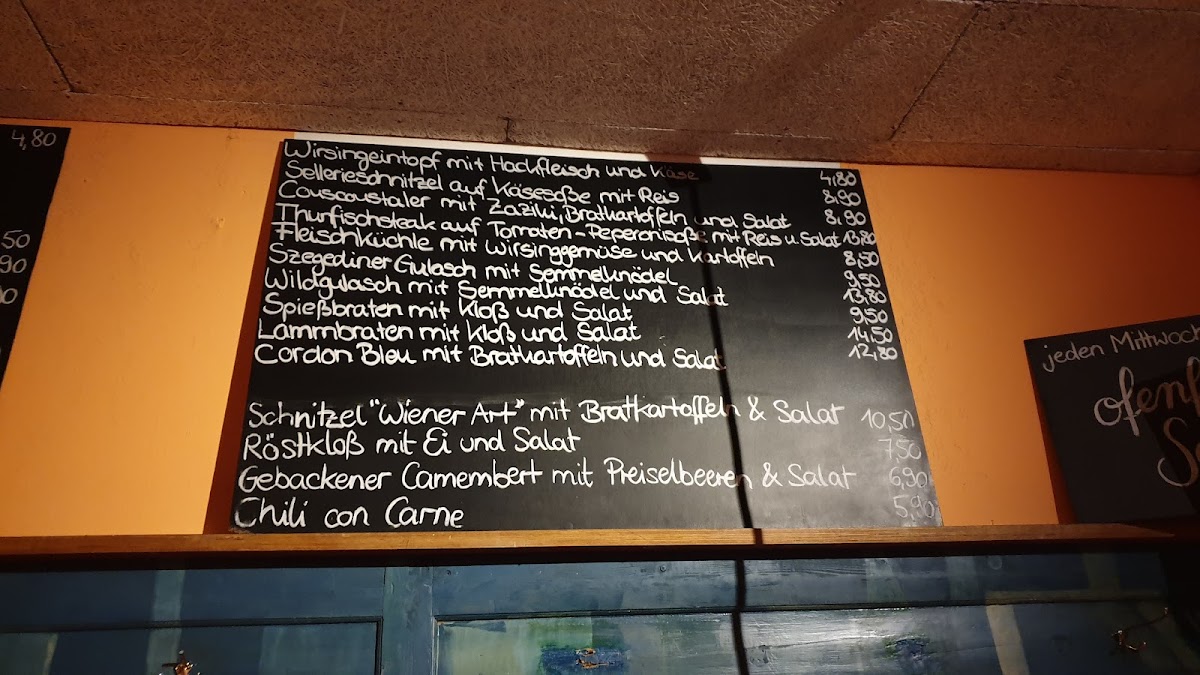 4,80
50
90
Wirsingeintopf mit Hackfleisch und Käse 4,80
Sellerieschnitzel auf Käsesoße mit Reis 8,90
Couscoustaler mit Zaziki, Bratkartoffeln und Salat 8,90
Thunfischsteak auf Tomaten-Peperonisoße mit Reis u. Salat 13,80
Fleischküchle mit Wirsinggemüse und Kartoffeln 8,50
Szegediner Gulasch mit Semmelknödel 9,50
Wildgulasch mit Semmelknödel und Salat 13,80
Spießbraten mit Kloß und Salat 9,50
Lammbraten mit Kloß und Salat 14,50
Cordon Bleu mit Bratkartoffeln und Salat 12,80
Schnitzel "Wiener Art" mit Bratkartoffeln & Salat 10,50
Röstkloß mit Ei und Salat 7,50
Gebackener Camembert mit Preiselbeeren & Salat 6,90
Chili con Carne 5,90
jeden Mittwoch